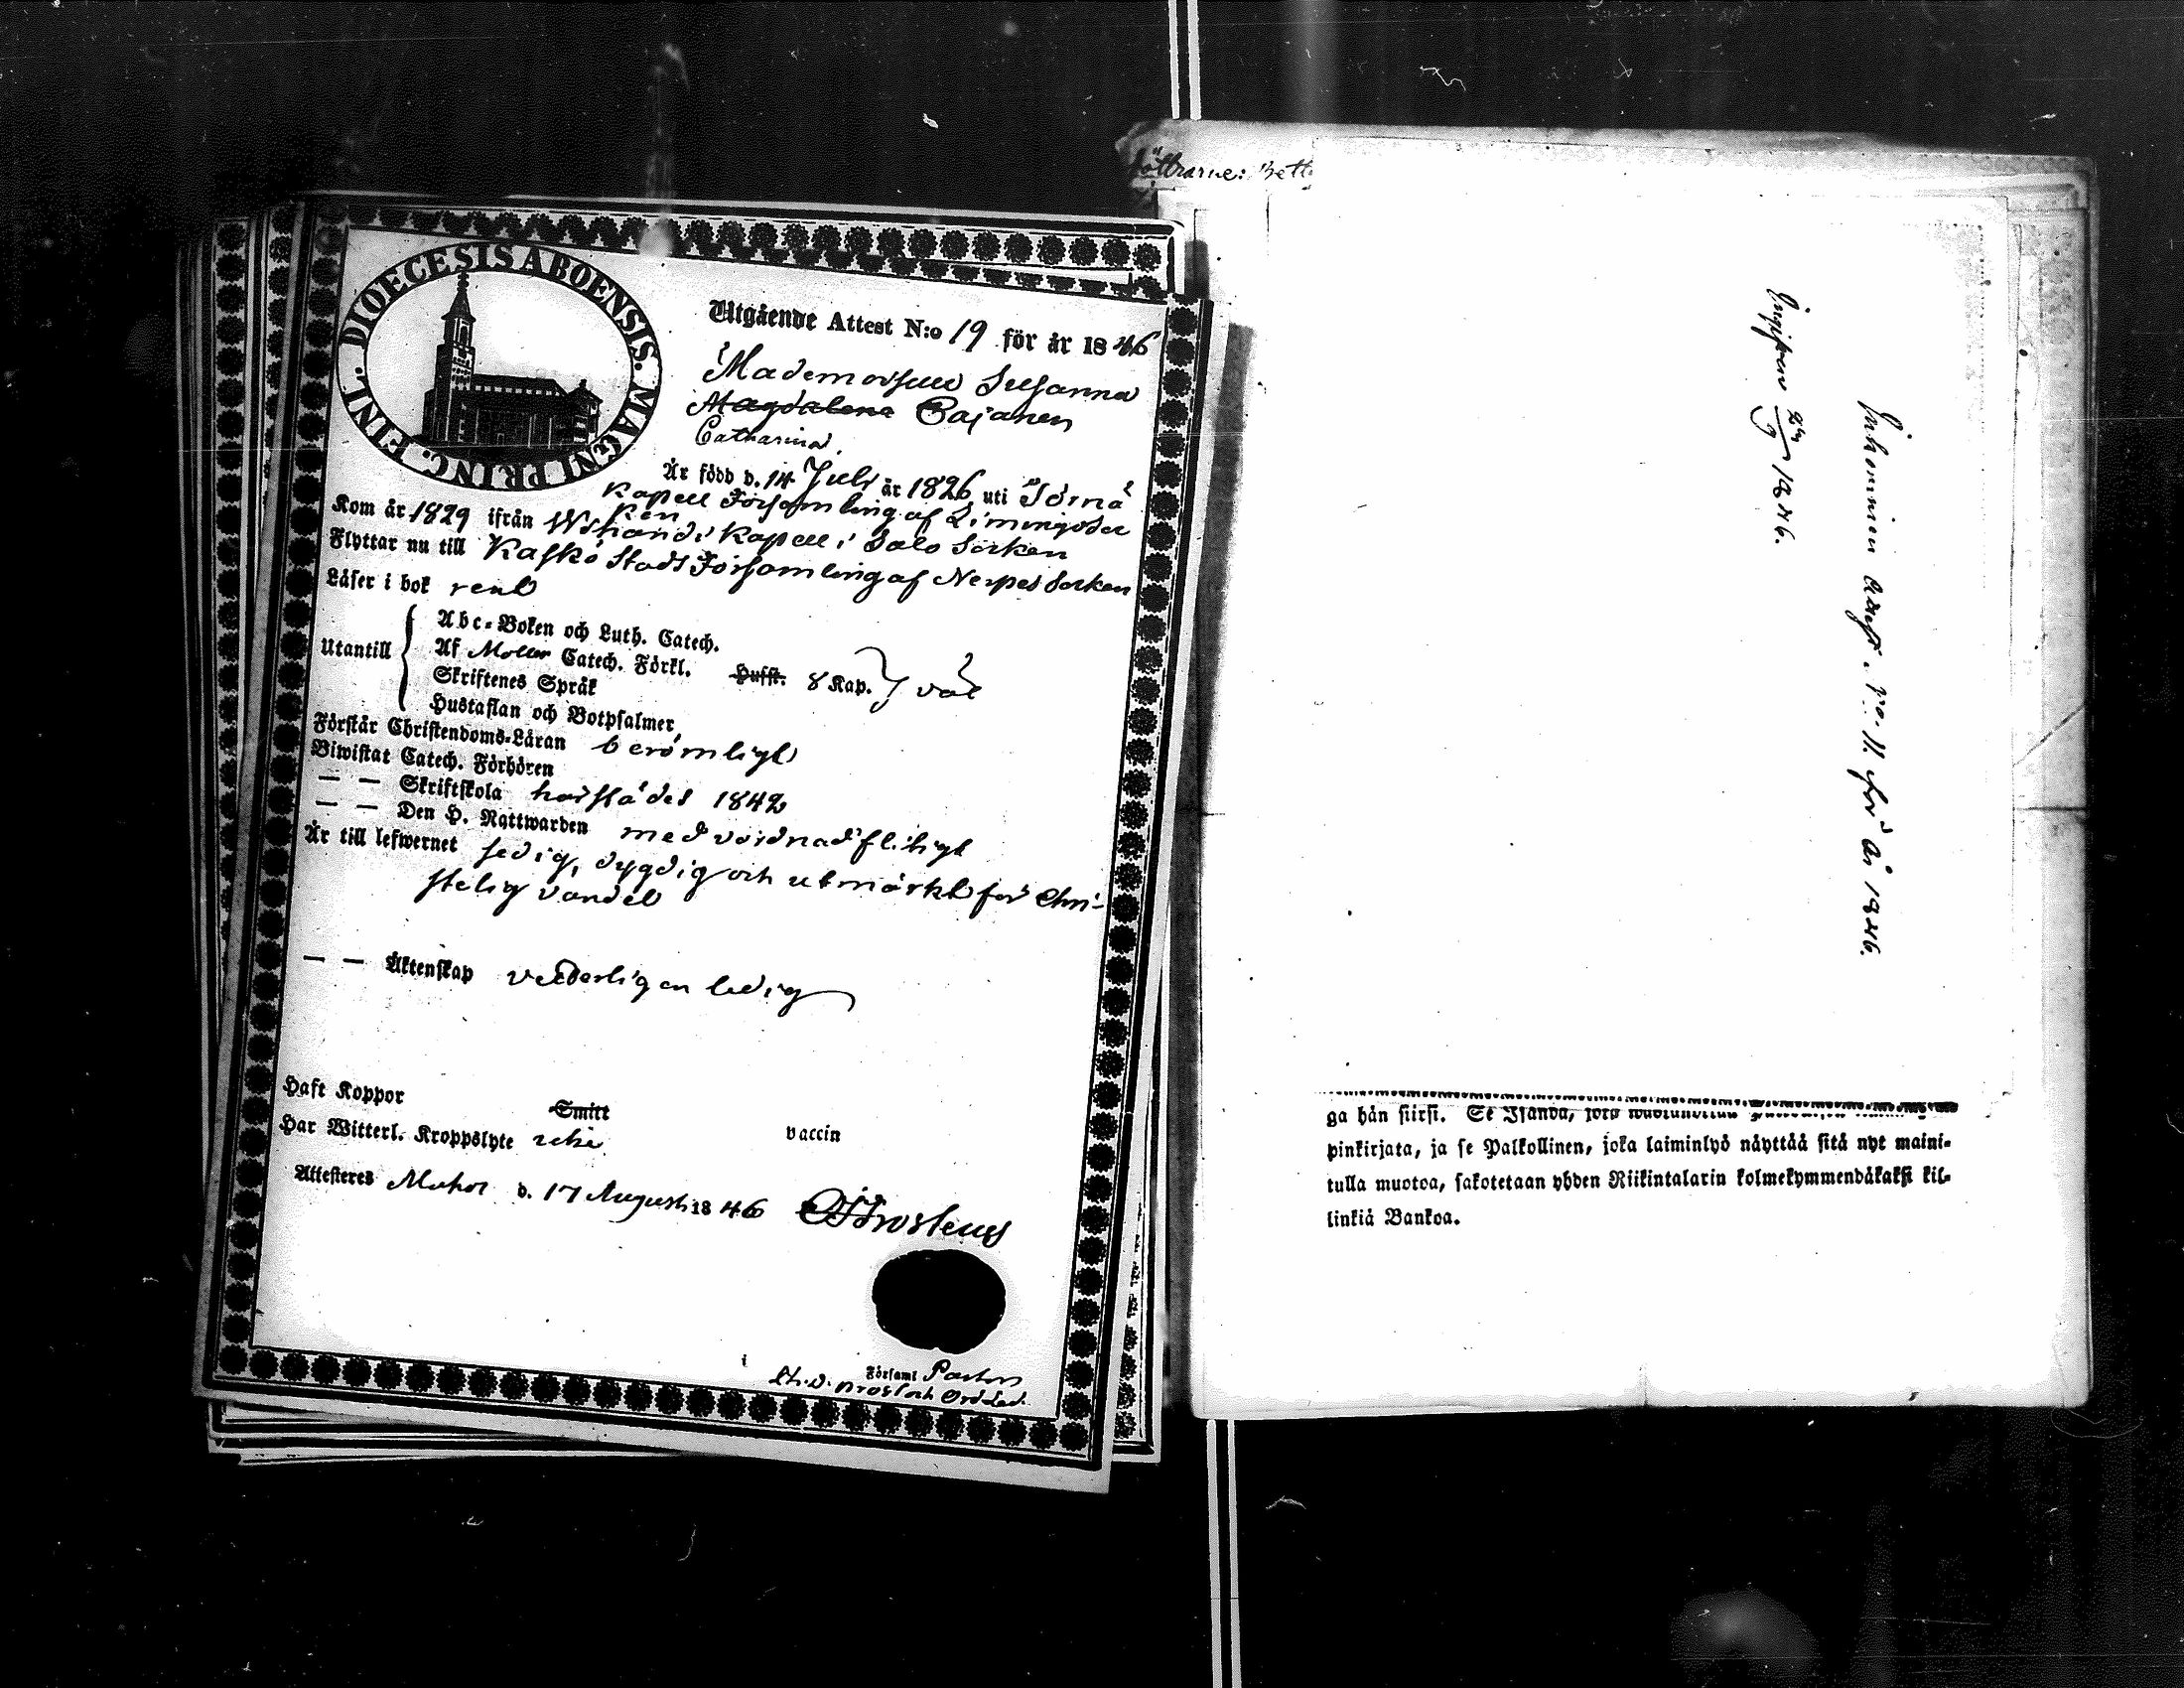 DIOECESIS ABOENSIS. MAGNI PRINC. FINL.
Utgående Attest N:o 19 för år 1846
Mademoiselle Susanna
Magdalena Cajanen
Catharina
Är född d. 14 Juli år 1826 uti
Kapell Församling af Limingo Soc
ken
Kom år 1829 ifrån Kapell i Salo Socken
Flyttar nu till Kaskö Stads Församling af Nerpes Socken
Läser i bok rent
Utantill
Abc-Boken och Luth. Catech.
Af Möllers Catech. Förkl. Hufst. 8 Kap.
Skriftenes Språk
Hustaflan och Botpsalmer
väl
Förstår Christendoms-Läran berömligt
Biwistat Catech. Förhören
— — Skriftskola härstädes 1842
— — Den H. Nattwarden med vördnad flitigt
Är till lefwernet sedig, dygdig och utmärkt för Chri-
stelig vandel
— — Äktenskap vederligen ledig
Haft Koppor Smitt vaccin
Har Witterl. Kroppslyte icke
Attesteres d. 17 Augusti 1846
Församl Pastor
Döttrarne: Bett
1846.
Inkommen attest. No. 11. för år 1846.
ga hän siirsi. Se Isändä, jota
pinkirjata, ja se Palkollinen, joka laiminlyö näyttää sitä nyt maini-
tulla muotoa, sakotetaan yhden Riikintalarin kolmekymmendäkaksi kil-
linkiä Bankoa.